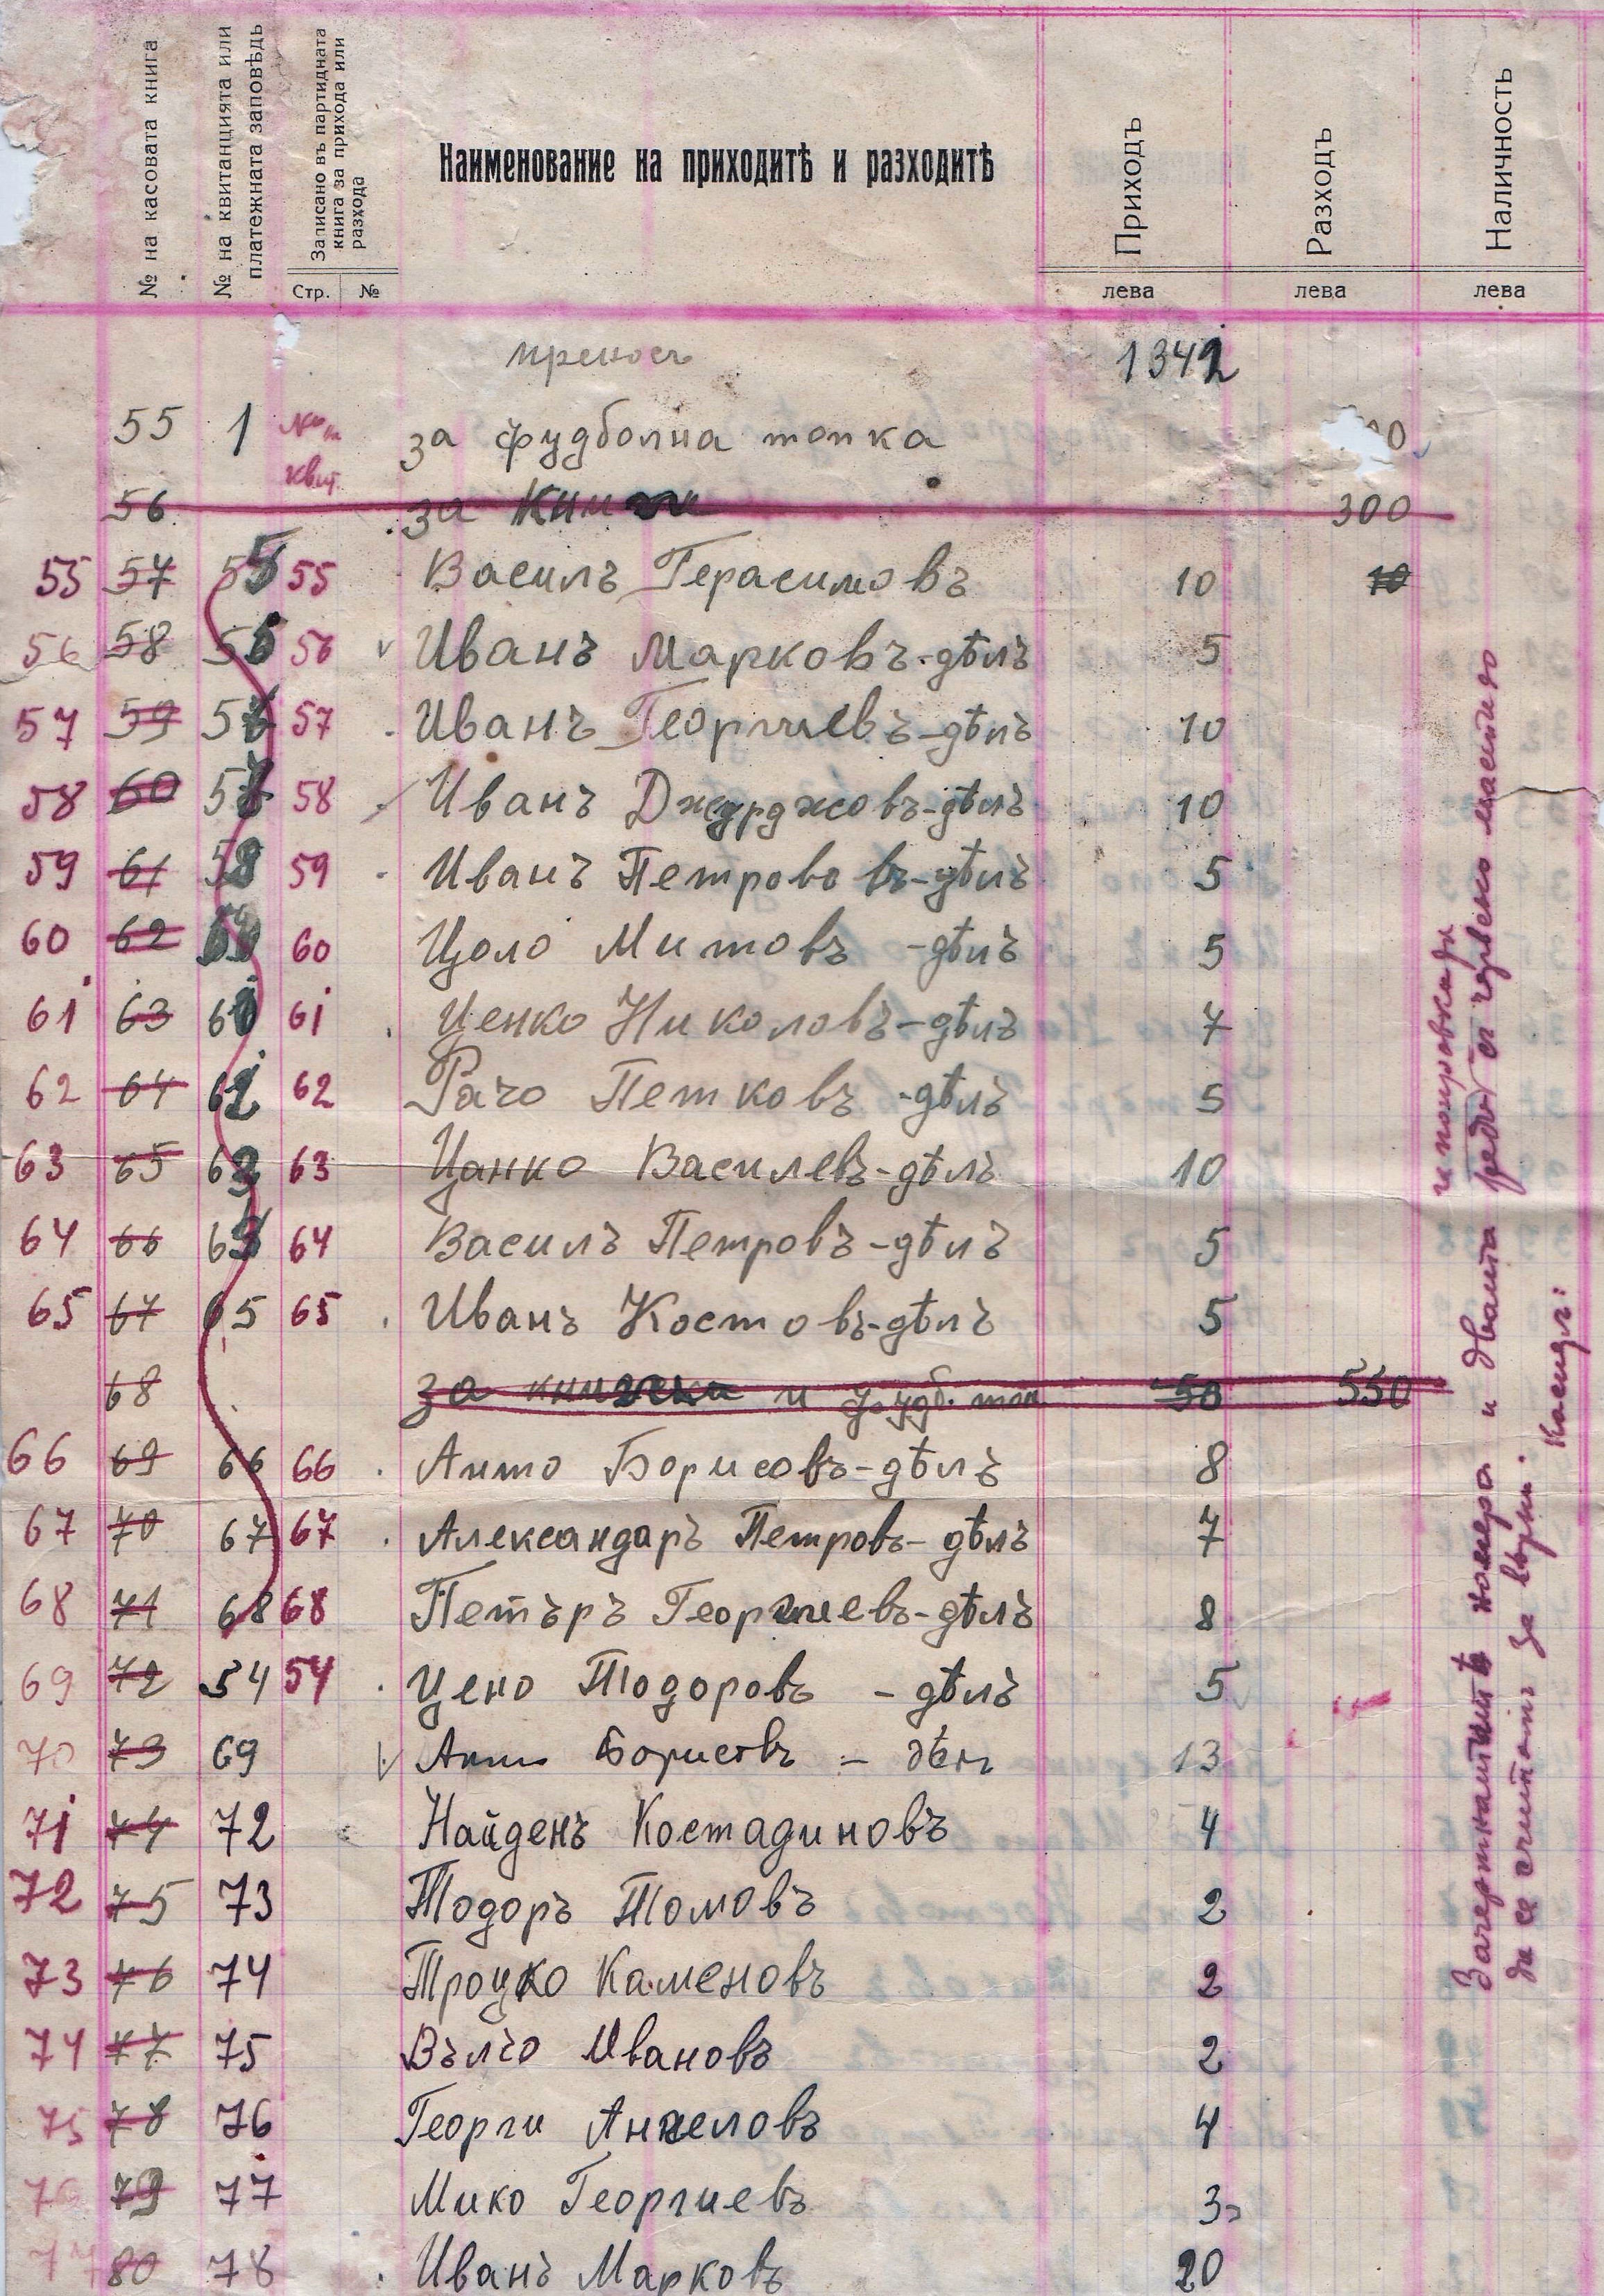 № на касовата книга
№ на квитанцията или
платежната заповѣдь
Записано въ партидната
книга за прихода или
разхода
Стр. №
Наименование на приходитѣ и разходитѣ
Приходъ
лева
Разходъ
лева
Наличность
лева
преносъ 1342
55 1 за футболна топка
квит.
56 за Книги 300
55 57 55 55 Василъ Герасимовъ 10 10
56 58 56 56 Иванъ Марковъ-дѣлъ 5
57 59 57 57 Иванъ Георгиевъ-дѣлъ 10
58 60 58 58 Иванъ Джурджовъ-дѣлъ 10
59 61 59 59 Иванъ Петровъ-дѣлъ 5
60 62 60 Цоло Митовъ -дѣлъ 5
61 63 61 61 Ценко Николовъ-дѣлъ 7
62 64 62 62 Рачо Петковъ -дѣлъ 5
63 65 63 63 Цанко Василевъ-дѣлъ 10
64 66 64 64 Василъ Петровъ-дѣлъ 5
65 67 65 65 Иванъ Костовъ-дѣлъ 5
68 за книжки и фудб. топ 50 550
66 69 66 66 Анто Борисовъ-дѣлъ 8
67 70 67 67 Александаръ Петровъ-дѣлъ 7
68 71 68 68 Петъръ Георгиевъ-дѣлъ 8
69 72 54 54 Цено Тодоровъ - дѣлъ 5
70 73 69 Анто Борисовъ - дѣл 13
71 74 72 Найденъ Костадиновъ 4
72 75 73 Тодоръ Томовъ 2
73 76 74 Троцко Каменовъ 2
74 77 75 Вълчо Ивановъ 2
75 78 76 Георги Ангеловъ 4
76 79 77 Мико Георгиевъ 3
77 80 78 Иванъ Марковъ 20
и поправкади
Зачеркнатитѣ номера и двата реда съ червено мастило
да се считатъ за вѣрни. Касиеръ: